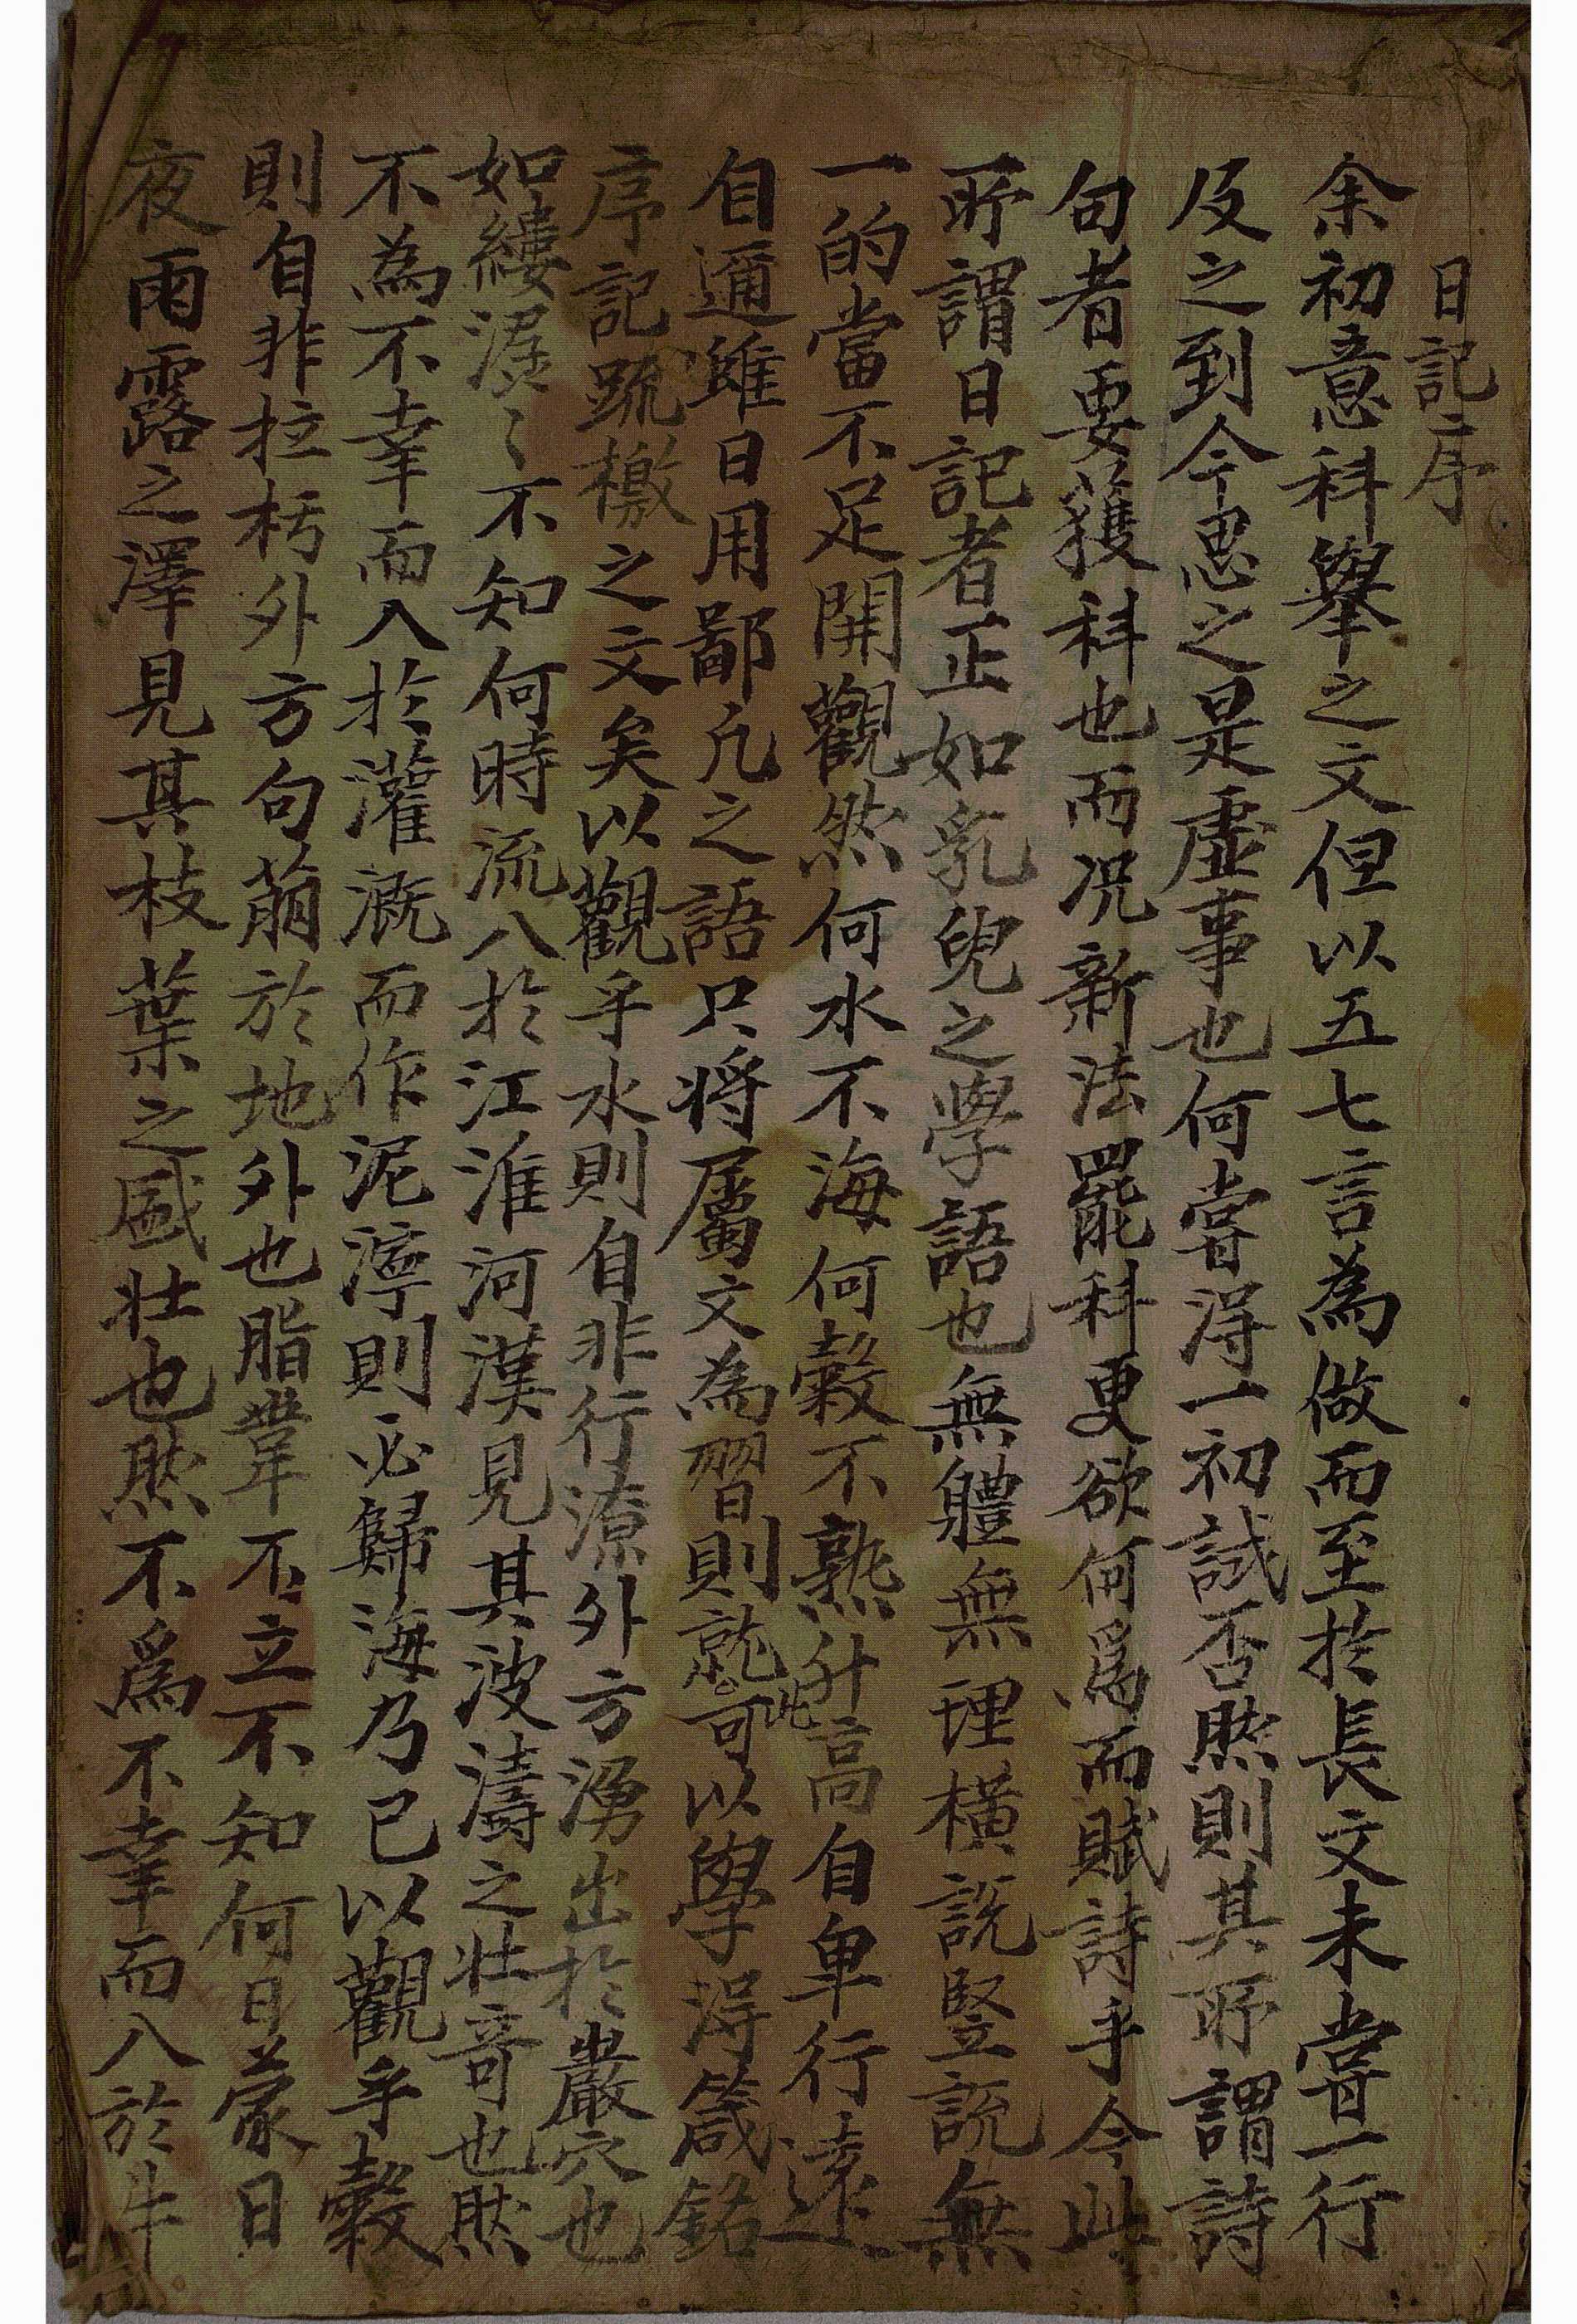 日記序
余初意科擧之文但以五七言為做而至於長文未嘗一行
及之到今思之是虛事也何嘗得一初試否然則其所謂詩
句者要獲科也而况新法罷科更欲何爲而賦詩乎今此
所謂日記者正如乳兒之學語也無軆無理橫說竪說無
一的當不足開觀然何水不海何穀不熟升高自卑行遠
自邇雖日用鄙凡之語只将屬文為習則就此可以學得箴銘
序記䟽檄之文矣以觀乎水則自非行潦外方湧出於巖穴也
如縷潺〻不知何時流入於江淮河漢見其波濤之壯奇也然
不為不幸而入於灌漑而作泥濘則必歸海乃已以觀乎穀
則自非拉朽外方句萠於地外也脂葦不立不知何日蒙日
夜雨露之澤見其枝葉之盛壯也然不爲不幸而入於牛